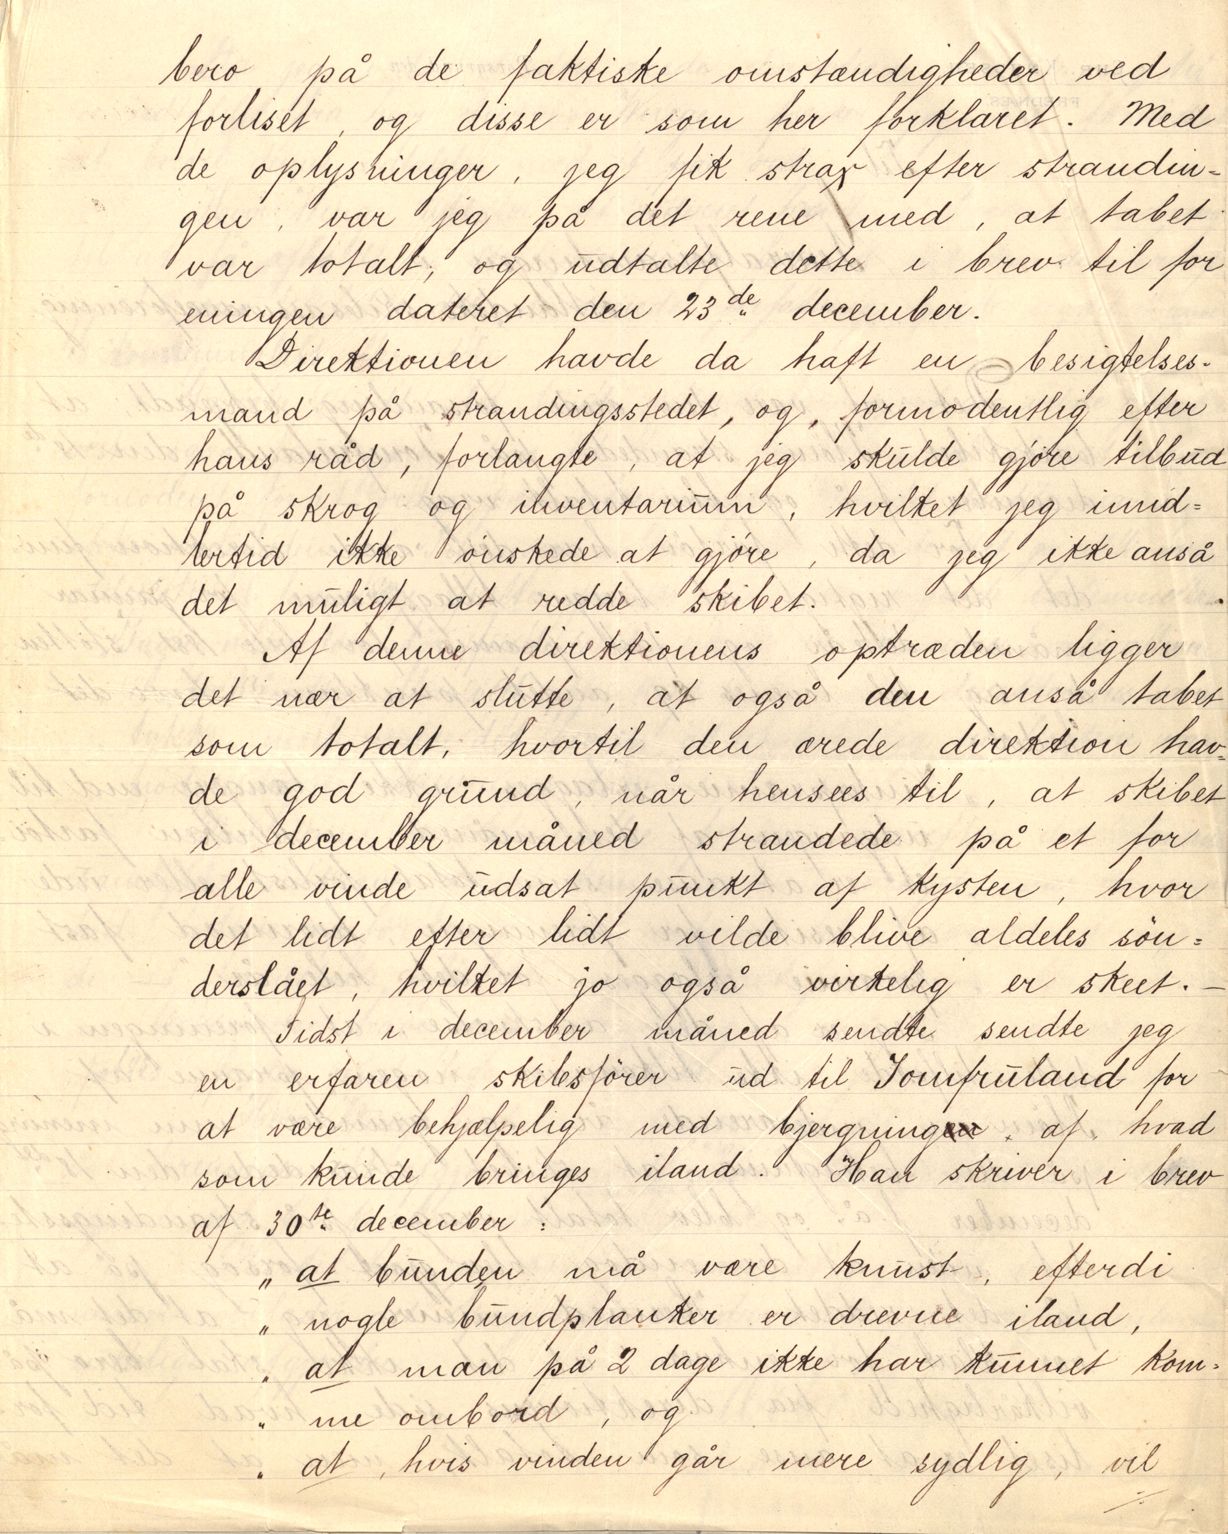 bero på de faktiske omstændigheder ved
forliset, og disse er som her forklaret. Med
de oplysninger, jeg fik strax efter strandin=
gen, var jeg på det rene med, at tabet
var totalt, og udtalte dette i brev til for
eningen dateret den 23de december.
Direktionen havde da haft en besigtelses-
mand på strandingsstedet, og, formodentlig efter
hans råd, forlangte, at jeg skulde gjöre tilbud
på skrog og inventarium, hvilket jeg imid=
lertid ikke önskede at gjöre, da jeg ikke anså
det muligt at redde skibet.
Af denne direktionens optræden ligger
det nær at slutte, at også den anså tabet
som totalt, hvortil den ærede direktion hav=
de god grund, når hensees til, at skibet
i december måned strandede på et for
alle vinde udsat punkt af kysten, hvor
det lidt efter lidt vilde blive aldeles sön=
derslået, hvilket jo også virkelig er skeet.—
Sidst i december måned sendte sendte jeg
en erfaren skibsförer ud til Jomfruland for
at være behjælpelig med bjergningen af hvad
som kunde bringes iland. Han skriver i brev
af 30te december:
" at bunden må være knust, efterdi
" nogle bundplanker er drevne iland,
" at man på 2 dage ikke har kunnet kom=
" me ombord, og
" at, hvis vinden går mere sydlig, vil